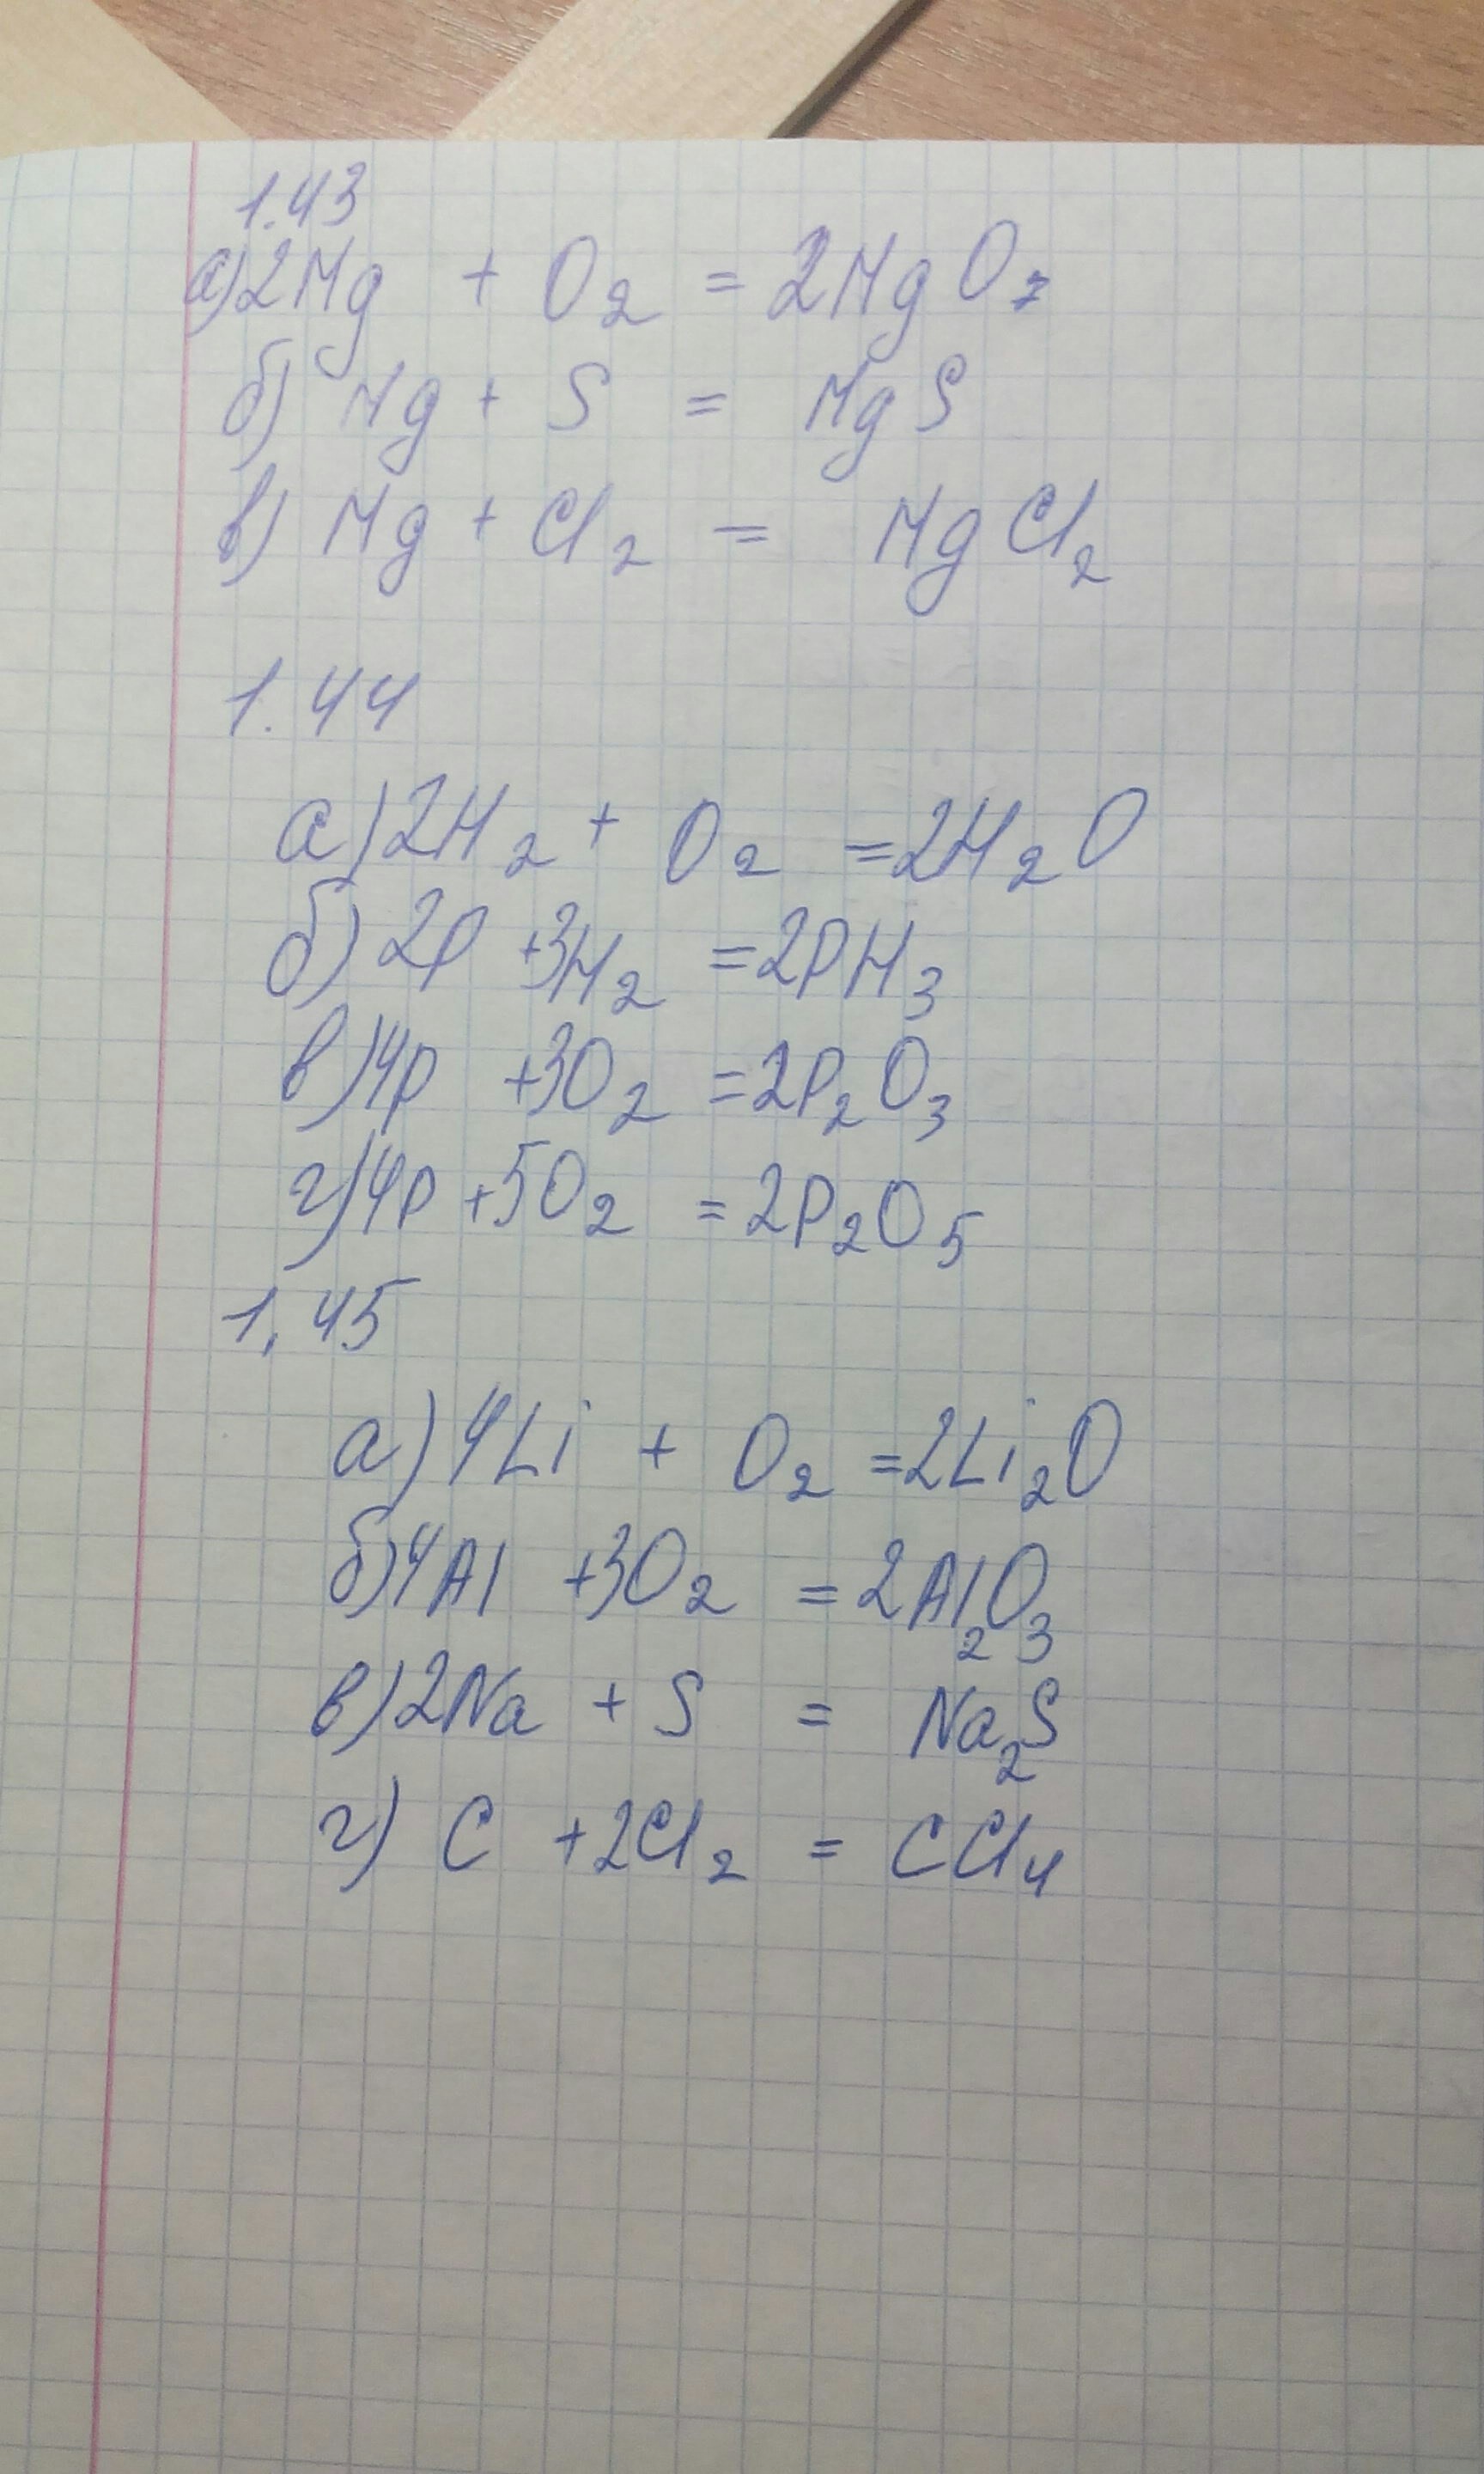 1.43
а) 2Mg + O₂ = 2MgO
б) Mg + S = MgS
в) Mg + Cl₂ = MgCl₂
1.44
а) 2H₂ + O₂ = 2H₂O
б) 2P + 3H₂ = 2PH₃
в) 4P + 3O₂ = 2P₂O₃
г) 4P + 5O₂ = 2P₂O₅
1.45
а) 4Li + O₂ = 2Li₂O
б) 4Al + 3O₂ = 2Al₂O₃
в) 2Na + S = Na₂S
г) C + 2Cl₂ = CCl₄